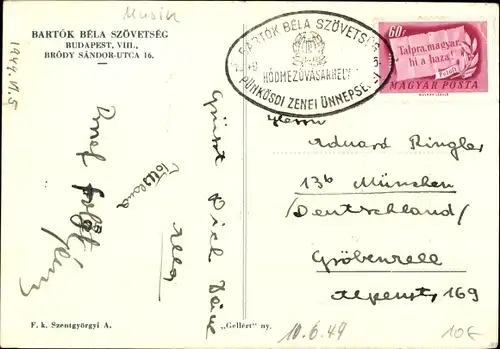 Musik
BARTÓK BÉLA SZÖVETSÉG
BUDAPEST, VIII.,
BRÓDY SÁNDOR-UTCA 16.
1949. VI. 5
BARTÓK BÉLA SZÖVETSÉG
HÓDMEZŐVÁSÁRHELY
PÜNKÖSDI ZENEI ÜNNEPSÉGEI
60f
Talpra magyar,
hi a haza!
Petőfi
MAGYAR POSTA
Herrn
Eduard Ringler
13b München
/Deutschland/
Gröbenzell
Alpenstr 169
Grüsst Dich Deine
F. k. Szentgyörgyi A.
„Gellért" ny.
10.6.49
10€